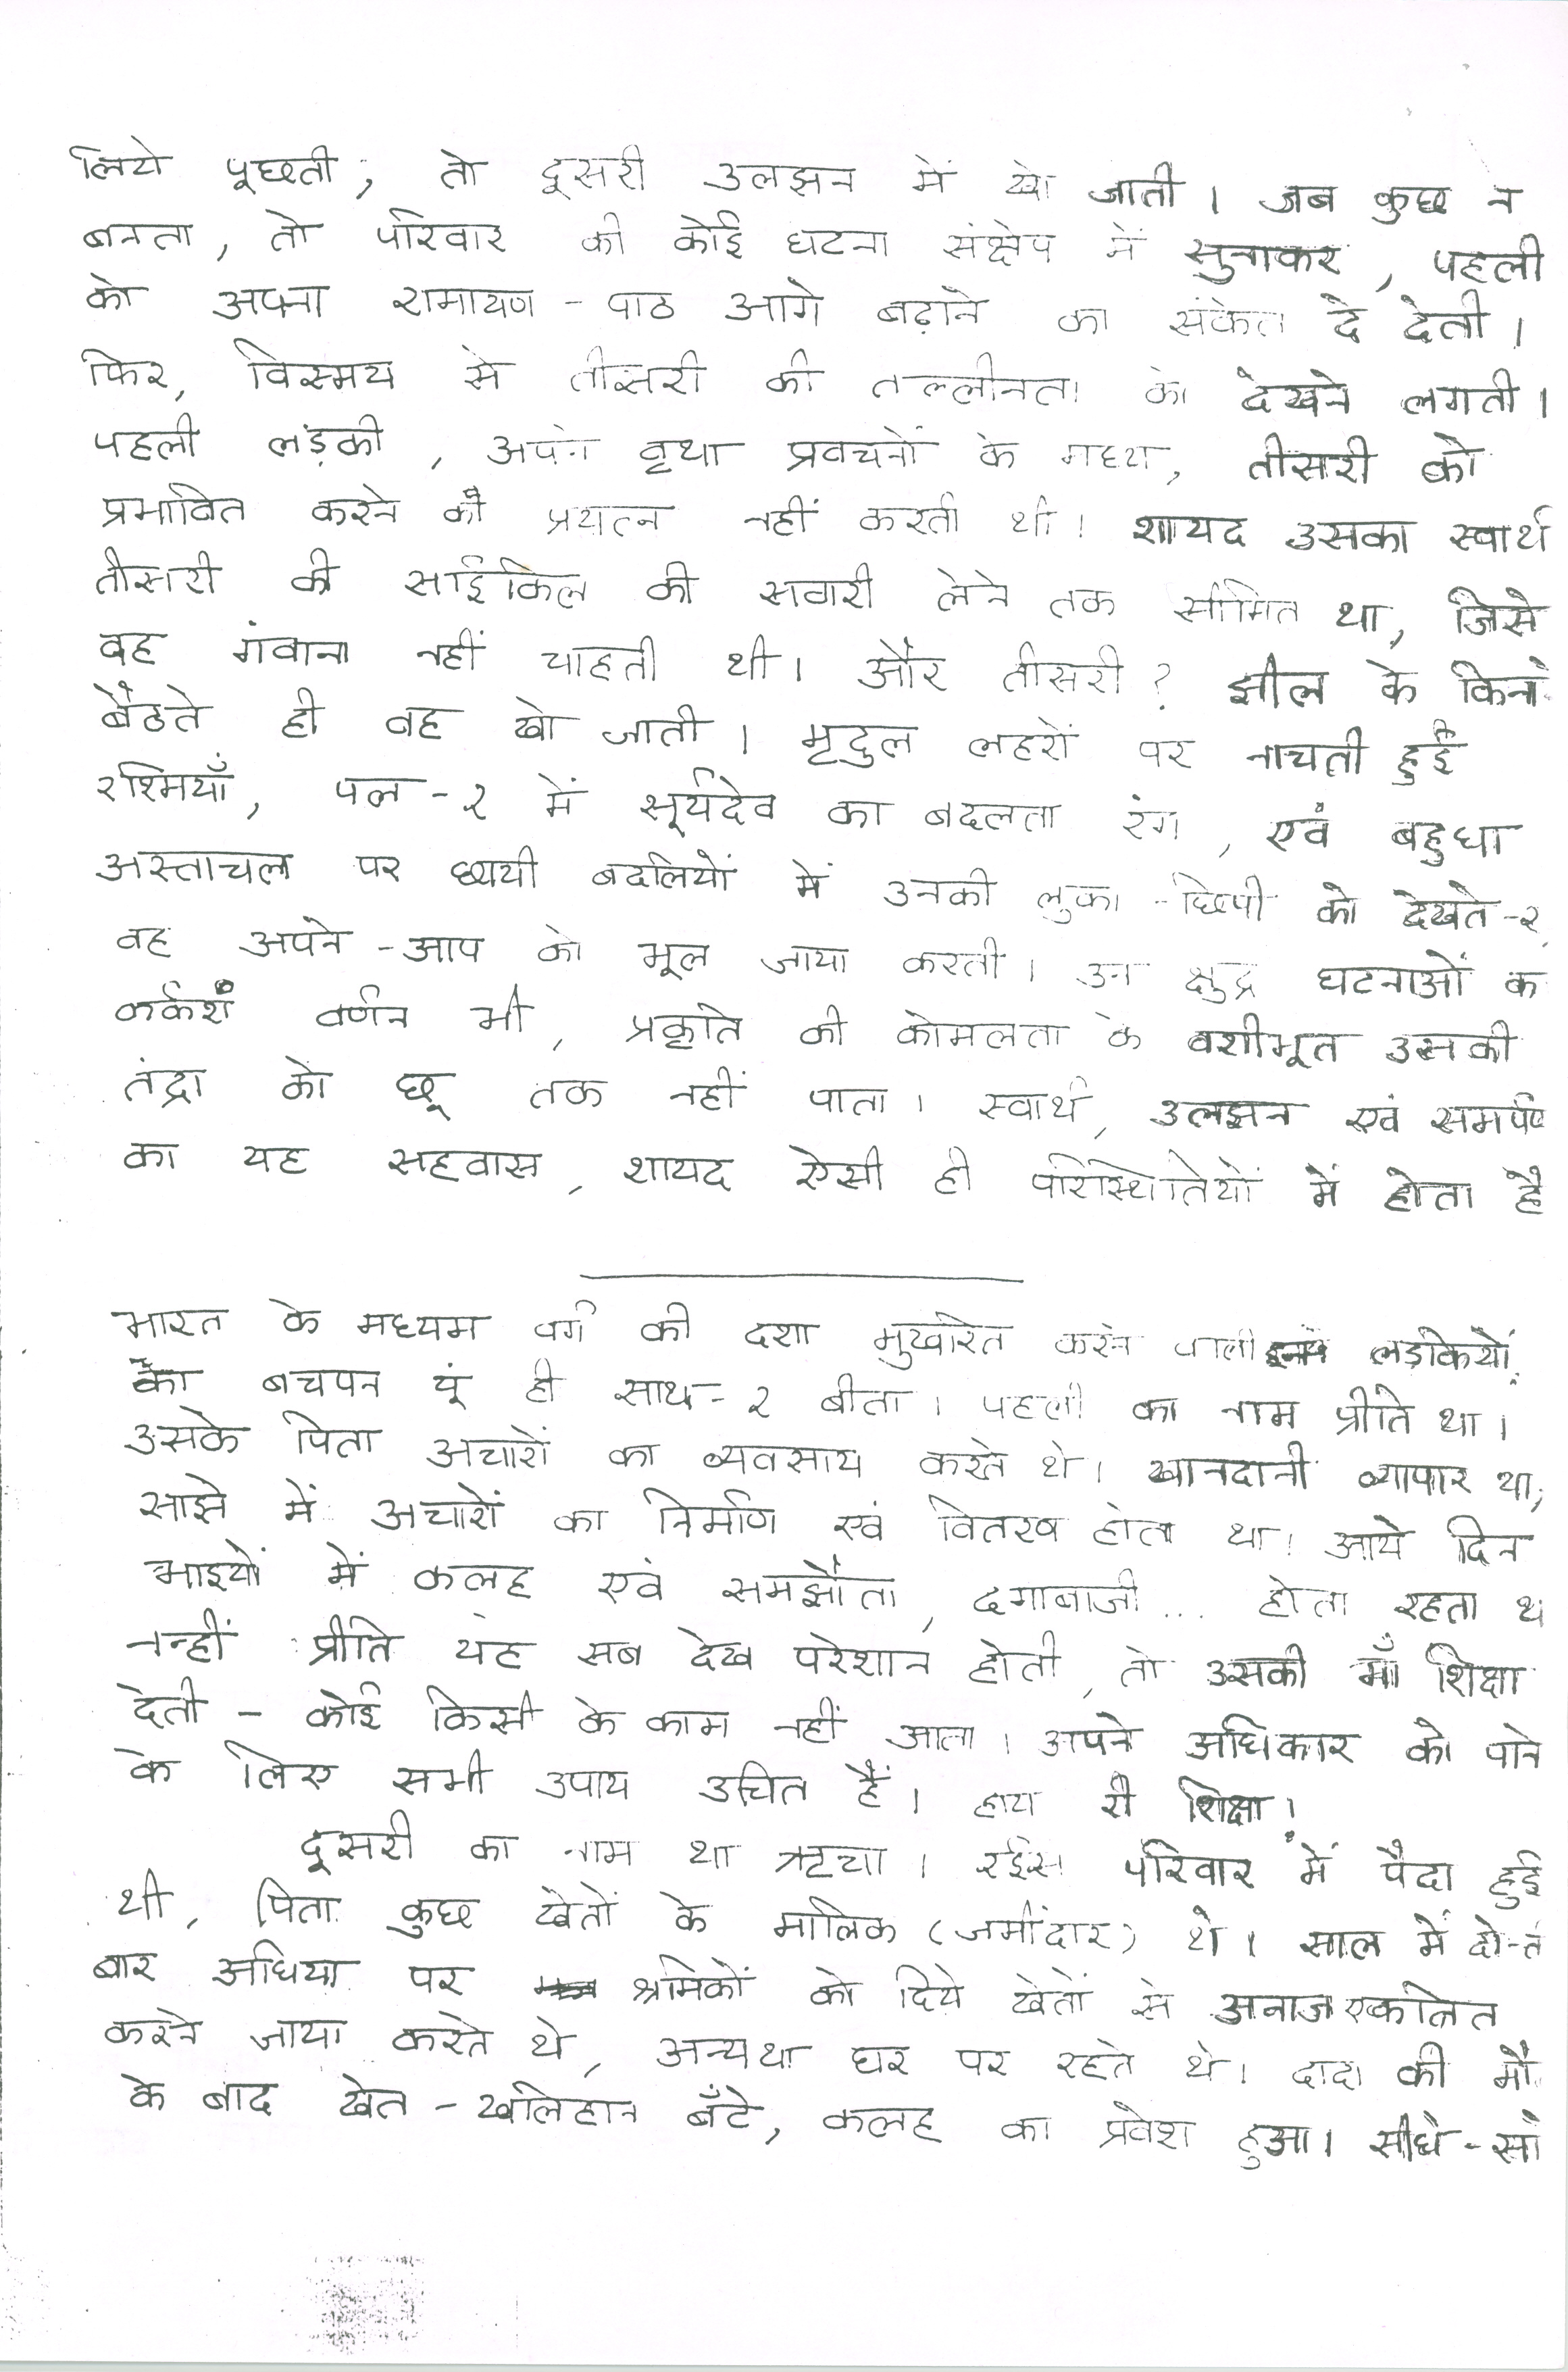 लिये पूछती, तो दूसरी उलझन में खो जाती। जब कुछ न
बनता, तो परिवार की कोई घटना संक्षेप में सुनाकर, पहली
को अपना रामायण - पाठ आगे बढ़ाने का संकेत दे देती।
फिर, विस्मय से तीसरी की तल्लीनता को देखने लगती।
पहली लड़की, अपने वृथा प्रवचनों के मध्य, तीसरी को
प्रभावित करने की प्रयत्न नहीं करती थी। शायद उसका स्वार्थ
तीसरी की साईकिल की सवारी लेने तक सीमित था, जिसे
वह गंवाना नहीं चाहती थी। और तीसरी? झील के किना
बैठते ही वह खो जाती। मृदुल लहरों पर नाचती हुई
रश्मियाँ, पल-२ में सूर्यदेव का बदलता रंग, एवं बहुधा
अस्ताचल पर छायी बदलियों में उनकी लुका-छिपी को देखते-२,
वह अपने-आप को भूल जाया करती। उन क्षुद्र घटनाओं क
कर्कश वर्णन भी, प्रकृति की कोमलता के वशीभूत उसकी
तंद्रा को छू तक नहीं पाता। स्वार्थ, उलझन एवं समर्पण
का यह सहवास, शायद ऐसी ही परिस्थितियों में होता है
भारत के मध्यम वर्ग की दशा मुखरित करने वाली लड़कियों
का बचपन यूं ही साथ-२ बीता। पहली का नाम प्रीति था।
उसके पिता अचारों का व्यवसाय करते थे। खानदानी व्यापार था;
साझे में अचारों का निर्माण एवं वितरण होता था। आये दिन
भाइयों में कलह एवं समझौता, दगाबाजी... होता रहता थ
नन्हीं प्रीति यह सब देख परेशान होती, तो उसकी माँ शिक्षा
देती - कोई किसी के काम नहीं आता। अपने अधिकार को पाने
के लिए सभी उपाय उचित हैं। हाय री शिक्षा!
दूसरी का नाम था ऋचा। रईस परिवार में पैदा हुई
थी, पिता कुछ खेतों के मालिक (जमींदार) थे। साल में दो-त
बार अधिया पर श्रमिकों को दिये खेतों से अनाज एकत्रित
करने जाया करते थे, अन्यथा घर पर रहते थे। दादा की मौ
के बाद खेत - खलिहान बँटे, कलह का प्रवेश हुआ। सीधे-सा